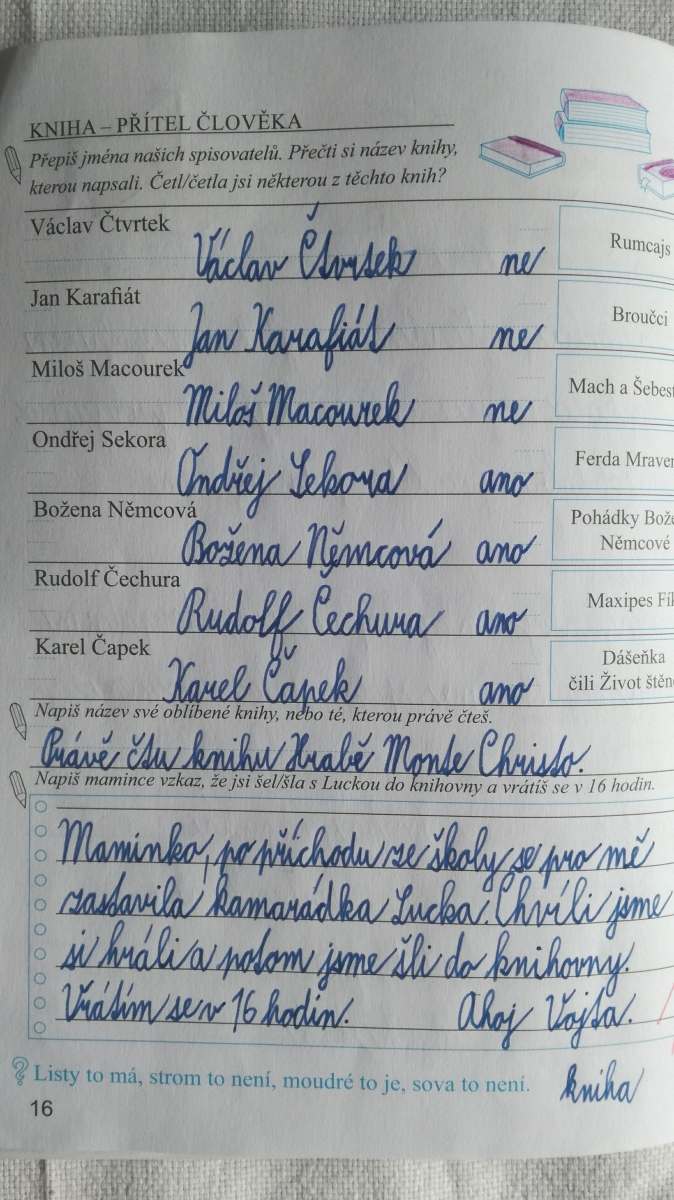 KNIHA – PŘÍTEL ČLOVĚKA
Přepiš jména našich spisovatelů. Přečti si název knihy,
kterou napsali. Četl/četla jsi některou z těchto knih?
Václav Čtvrtek
Václav Čtvrtek ne Rumcajs
Jan Karafiát
Jan Karafiát ne Broučci
Miloš Macourek
Miloš Macourek ne Mach a Šebest
Ondřej Sekora
Ondřej Sekora ano Ferda Mraven
Božena Němcová
Božena Němcová ano Pohádky Bože
Němcové
Rudolf Čechura
Rudolf Čechura ano Maxipes Fík
Karel Čapek
Karel Čapek ano Dášeňka
čili Život štěně
Napiš název své oblíbené knihy, nebo té, kterou právě čteš.
Právě čtu knihu Hrabě Monte Christo.
Napiš mamince vzkaz, že jsi šel/šla s Luckou do knihovny a vrátíš se v 16 hodin.
Maminko, po příchodu ze školy se pro mě
zastavila kamarádka Lucka. Chvíli jsme
si hráli a potom jsme šli do knihovny.
Vrátím se v 16 hodin. Ahoj Vojta.
Listy to má, strom to není, moudré to je, sova to není. kniha
16